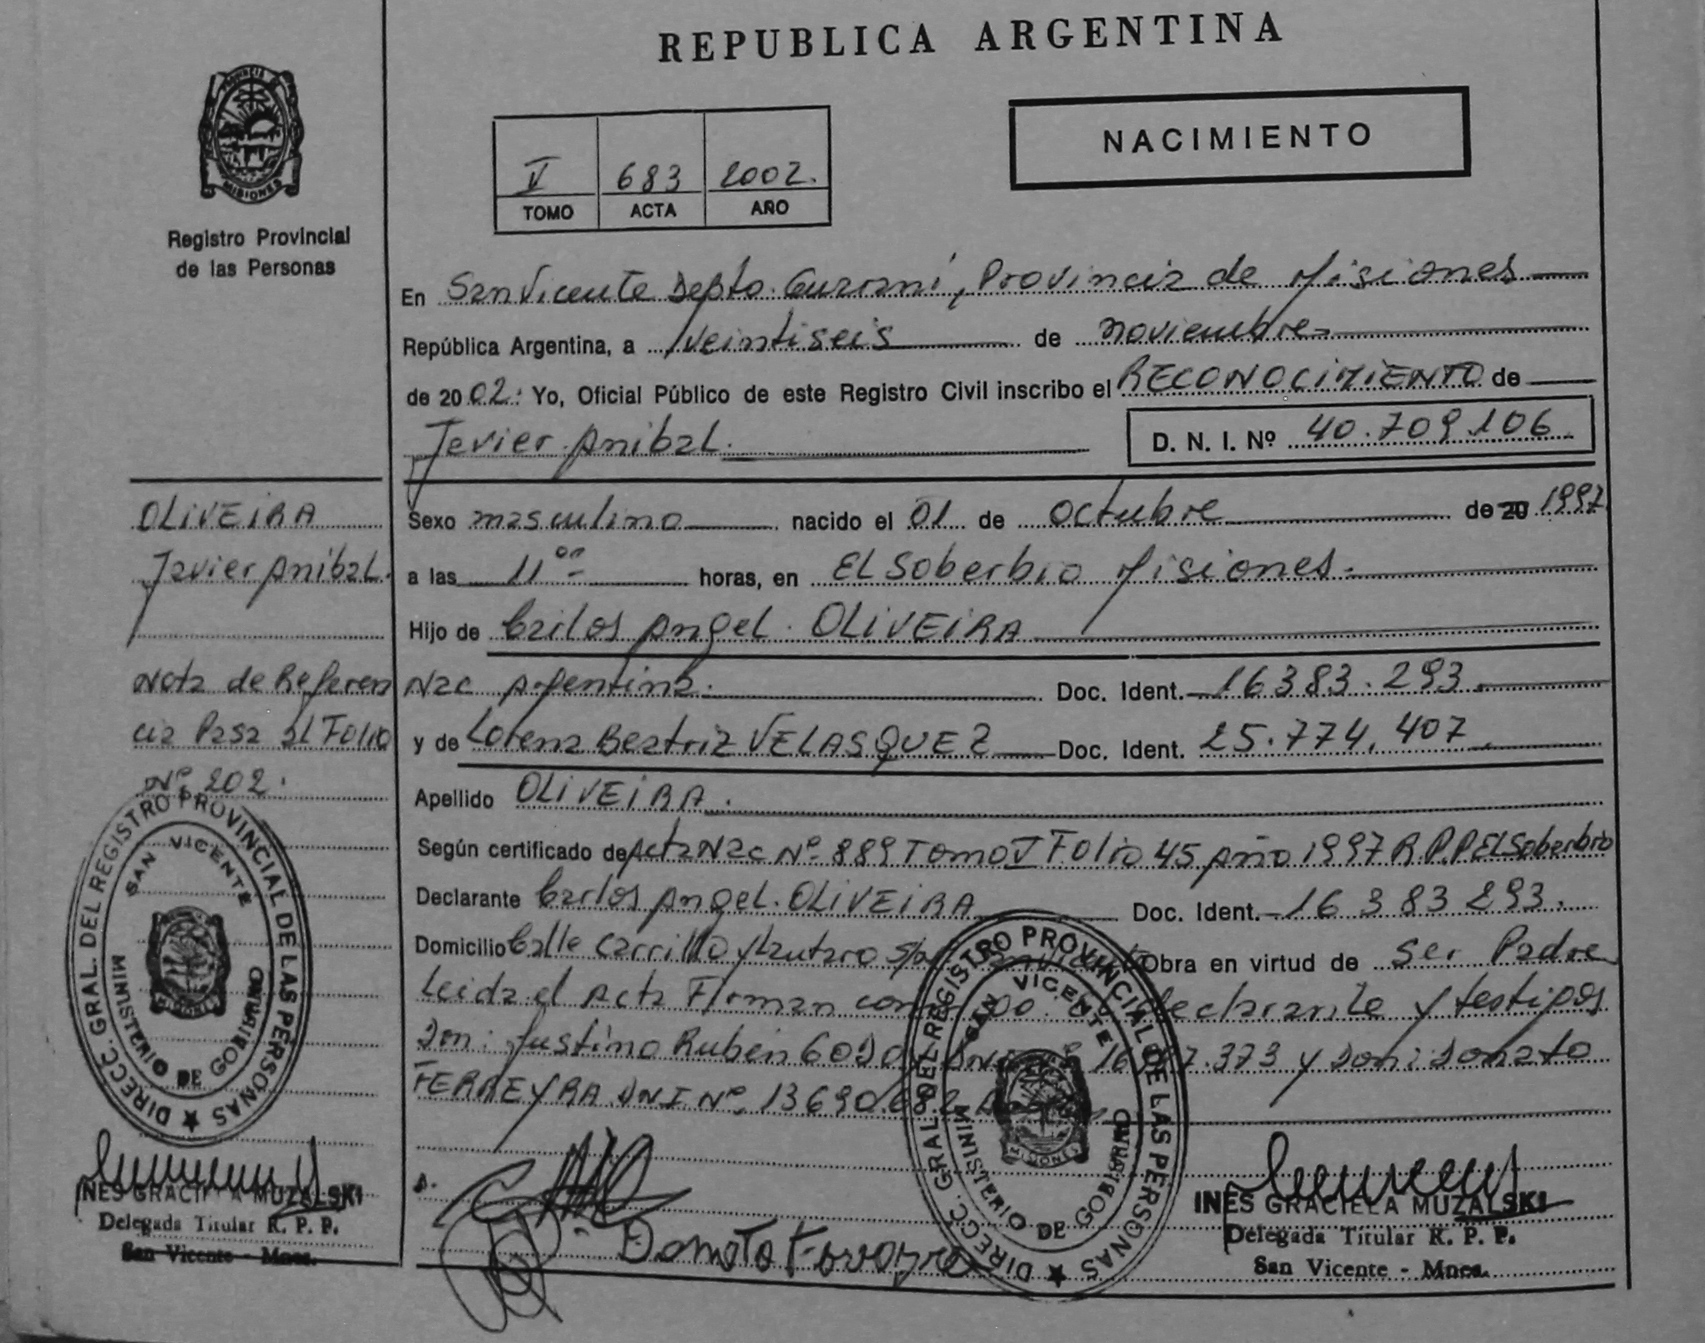 REPUBLICA ARGENTINA
PROVINCIA DE
MISIONES
Registro Provincial
de las Personas
V 683 2002.
TOMO ACTA AÑO
NACIMIENTO
En San Vicente Depto. Guaraní, Provincia de Misiones
República Argentina, a veintiseis de noviembre
de 2002. Yo, Oficial Público de este Registro Civil inscribo el RECONOCIMIENTO de
Javier Anibal.
D. N. I. Nº 40.709.106
OLIVEIRA
Javier Anibal.
Nota de Referen
cia Pasa al Folio
Nº 202.
Sexo masculino nacido el 01 de octubre de 20 1997
a las 11 00 horas, en El Soberbio Misiones.
Hijo de Carlos Angel. OLIVEIRA
Nac Argentina. Doc. Ident. 16383.293.
y de Lorena Beatriz VELASQUEZ Doc. Ident. 25.774.407
Apellido OLIVEIRA.
Según certificado de Acta Nac Nº 889 Tomo V Folio 45 Año 1997 R.P.P El Soberbio
Declarante Carlos Angel. OLIVEIRA Doc. Ident. 16 383 293.
Domicilio Calle Carrillo y Lautaro Obra en virtud de Ser Padre
Leida el Acta Firman declarante y testigos
Don: Justino Ruben 373 y Don: Donato
FERREYRA DNI Nº 13690.682
DIRECC. GRAL. DEL REGISTRO PROVINCIAL DE LAS PERSONAS
SAN VICENTE
MINISTERIO DE GOBIERNO
INES GRACIELA MUZALSKI
Delegada Titular R. P. P.
San Vicente - Mnes.
DIRECC. GRAL. DEL REGISTRO PROVINCIAL DE LAS PERSONAS
SAN VICENTE
MISIONES
MINISTERIO DE GOBIERNO
Donato
INES GRACIELA MUZALSKI
Delegada Titular R. P. P.
San Vicente - Mnes.